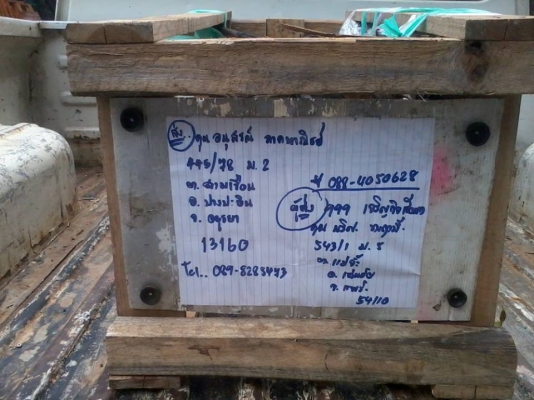 ถึง คุณ อนุสรณ์
/78 ม. 2
ต. สามเรือน
อ. บางปะอิน
จ. อยุธยา
13160
Tel.. 089-8285473
088-4050628
ผู้ส่ง
543/1 ม. 5
ต. แม่จั๊วะ
อ. เด่นชัย
จ. แพร่
54110